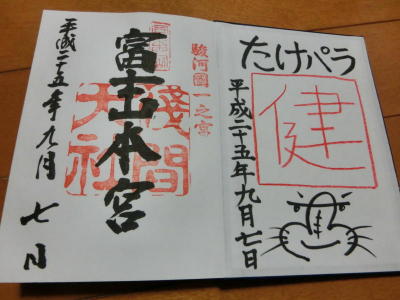 たけパラ
健
平成二十五年九月七日
駿河國一之宮
富士山本宮
淺間大社
平成二十五年九月七日